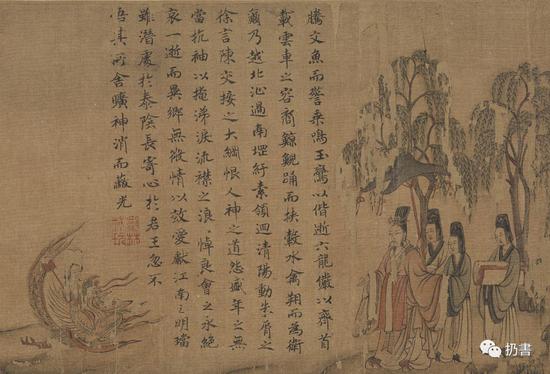 騰文魚而警乘鳴玉鸞以偕逝六龍儼以齊首
載雲車之容裔鯨鯢踊而挾轂水禽翔而為衛
乃越北沚過南堽紆素領迴清陽動朱脣之
徐言陳交接之大綱恨人神之道怨盛年之無
當抗袖以掩涕淚流襟之浪〃悼良會之永絕
哀一逝而異鄉無微情以效愛獻江南之明璫
雖潛處於泰陰長寄心於君王忽不
悟其所舍曠神消而蔽光
扔書